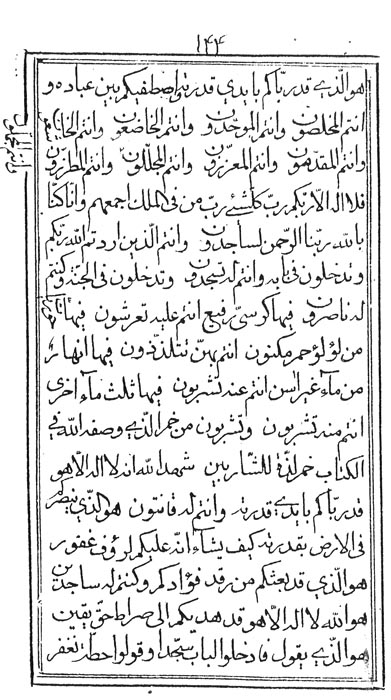 ١٤٤
هو الذي قد ربّاكم بايدي قدرته واصطفيكم بين عباده و
انتم المخلصون وانتم الموحدون وانتم الخاضعون وانتم الخاشعون
وانتم المقدّسون وانتم المعززون وانتم المجللون وانتم المطرزون
فلا اله الا ربكم ربّ كلشئ ربّ من في الملك اجمعهم وانا كنا
بالله ربنا الرحمن لساجدون وانتم الذين اردتم الله ربكم
وتدخلون في بابه وانتم له تسجدون وتدخلون في الجنة وكنتم
له ناصرون فيها كرسيّ رفيع انتم عليه تعرشون فيها
من لؤلؤ حمر مكنون انتم بهنّ تتلذذون فيها انهار
من مآء غير اسن انتم عنه تشربون فيها ثلث مآء اخرى
انتم منه تشربون وتشربون من خمر الذي وصفه الله في
الكتاب خمر لذة للشاربين شهد الله انه لا اله الا هو
قد ربّاكم بايدي قدرته وانتم له قانتون هو الذي
في الارض بقدرته كيف يشآء انه عليكم لرؤف غفور
هو الذي قد بعثكم من رقد فؤادكم وكنتم له ساجدين
هو الله لا اله الا هو قد هديكم الى صراط حقّ يقين
هو الذي يقول فادخلوا الباب سجّدا وقولوا حطة نغفر